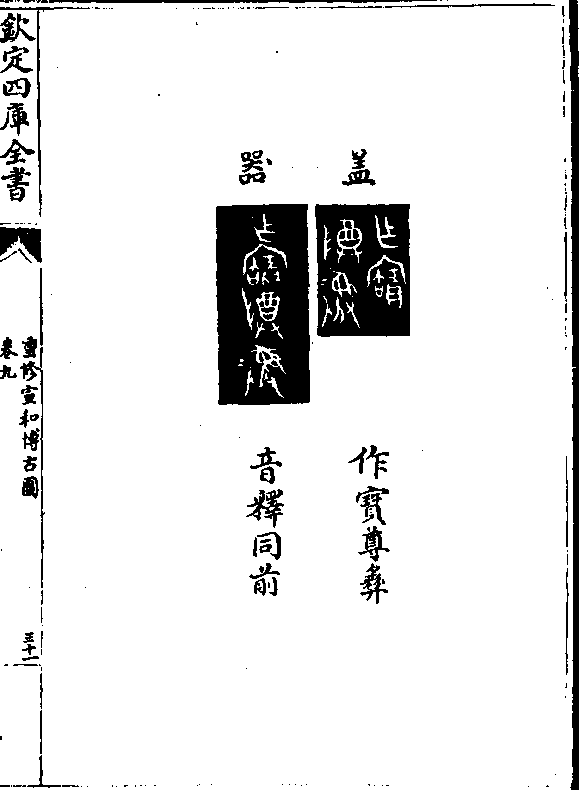 蓋
作寶尊彝
器
音釋同前
欽定四庫全書
重修宣和博古圖
卷九
三十一